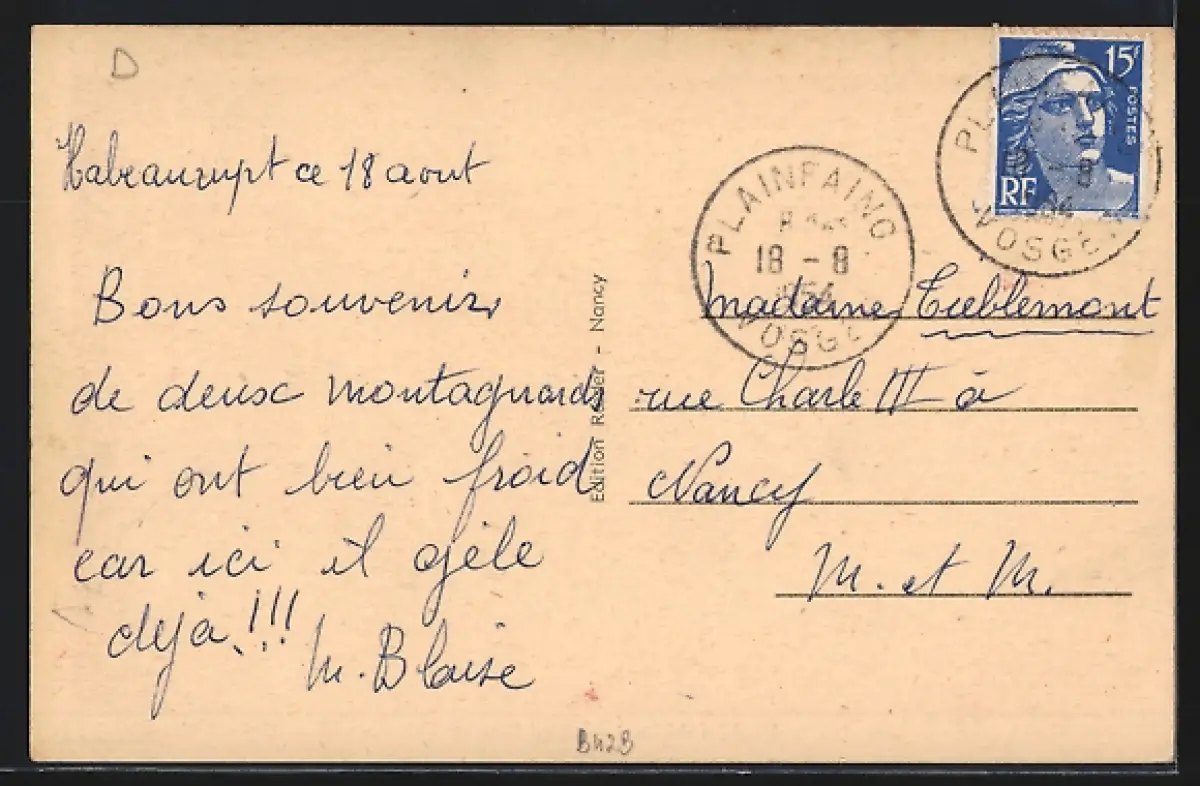 D
Habeaurupt ce 18 aout
Bons souvenirs
de deux montagnards
qui ont bien froid
car ici il gèle
déjà !!!
M. Blaise
Edition Reader - Nancy
15F
POSTES
RF
PLAINFAING
18 - 8
1954
VOSGES
Madame Tieblemont
rue Charle III à
Nancy
M. et M.
B423